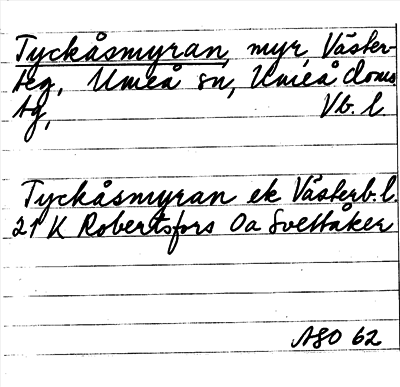 Tyckåsmyran, myr, Väster-
teg, Umeå sn, Umeå doms
tg, Vb. l.
Tyckåsmyran ek Västerb. l.
21 K Robertsfors Oa Svettåker
ASO 62